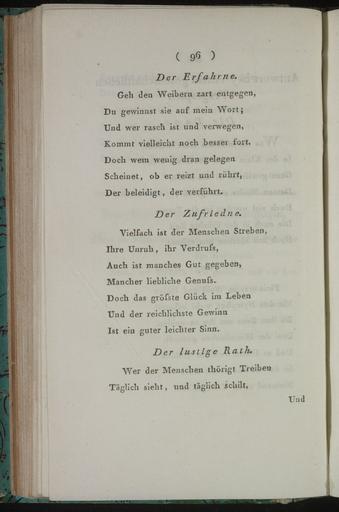 ( 96 )
Der Erfahrne.
Geh den Weibern zart entgegen,
Du gewinnst sie auf mein Wort;
Und wer rasch ist und verwegen,
Kommt vielleicht noch besser fort.
Doch wem wenig dran gelegen
Scheinet, ob er reizt und rührt,
Der beleidigt, der verführt.
Der Zufriedne.
Vielfach ist der Menschen Streben,
Ihre Unruh, ihr Verdruſs,
Auch ist manches Gut gegeben,
Mancher liebliche Genuſs.
Doch das gröſste Glück im Leben
Und der reichlichste Gewinn
Ist ein guter leichter Sinn.
Der lustige Rath.
Wer der Menschen thörigt Treiben
Täglich sieht, und täglich schilt,
Und